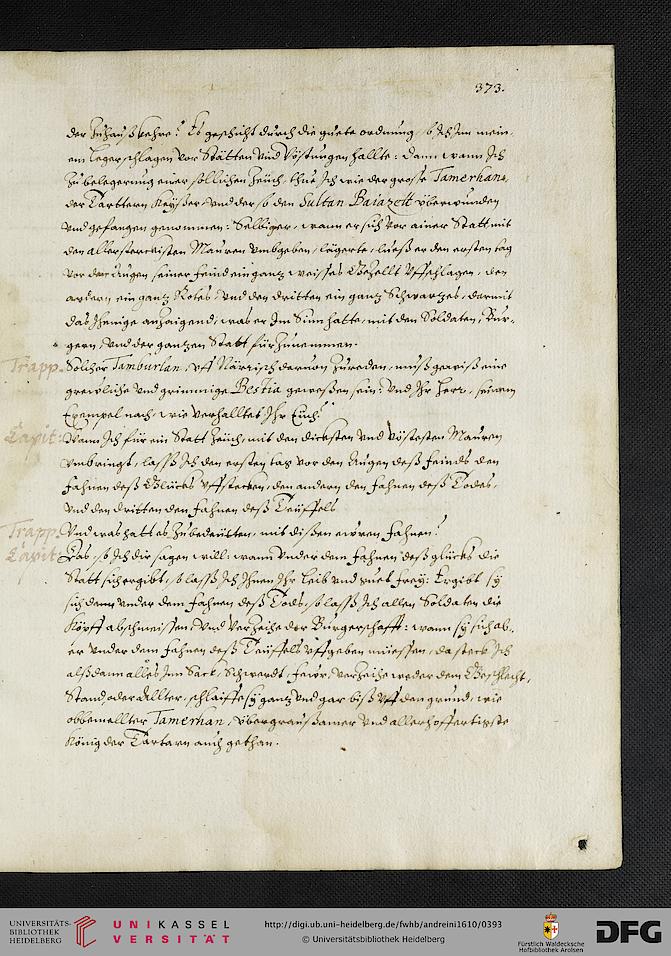 373.
der Zuhauß kehre? Es geschicht durch die guete ordnung, so Ich Inn mein
em Leger schlagen vor Stätten und Vöstungen hallte: dann wann Ich
zu belegerung einer sollichen zeüch, thue Ich wie der grosse Tamerhane,
der Tarttern Keyßer, und der so den Sultan Baiazett überwunden
und gefangen genommen: Selbiger, wann er sich vor ainer Statt mit
den allersterckisten Mauren umbgeben, lägerte, ließ er den ersten tag
vor den Augen seiner feind ein gantz weisses Gezellt uffschlagen, den
andern ein gantz Rotes, und den dritten ein gantz Schwartzes, darmit
das Ihenige anzaigend, was er Im Sinn hatte, mit den Soldaten, Bur-
gern, und der gantzen Statt fürzunemmen.
Trapp. Solcher Tamburlan, uff Närrisch darvon zureden, muß gewiß eine
grewliche und grimmige Bestia gewesen sein: und Ihr Herr, seinem
Exempel nach, wie verhalltet Ihr Euch?
Capit: Wann Ich für ein Statt zeüch, mit den dicksten und vöstesten Mauren
umbringt, lass Ich den ersten tag vor den Augen deß feinds den
fahnen deß Glücks uffstecken, den andern den fahnen deß Todes,
und den dritten den fahnen deß Teüffels
Trapp. Und was hatt es zubedeütten, mit dißen ewren fahnen?
Capit: Das, so Ich dir sagen will: wann under dem fahnen deß glücks die
Statt sich ergibt, so lass Ich Ihnen Ihr Leib und guet frey: Ergibt sy
sich dann under dem fahnen deß Tods, so lass Ich allen Soldaten die
Köpff abschmeissen, und verzeihe der Burgerschafft: wann sy sich ab,
er under dem fahnen deß Teüffels uffgeben müessen, da steck Ich
alßdann alles Inn Sack, Schwerdt, fewr, verzeihe weder dem Geschlecht,
Stand, oder Allter, schlaiffe sy gantz und gar biß uff den grund, wie
obbemellter Tamerhan, übergraußamer und allerhoffertigste
König der Tartarn auch gethan.
UNIVERSITÄTS-
BIBLIOTHEK
HEIDELBERG
UNIKASSEL
VERSITÄT
http://digi.ub.uni-heidelberg.de/fwhb/andreini1610/0393
© Universitätsbibliothek Heidelberg
Fürstlich Waldecksche
Hofbibliothek Arolsen
DFG